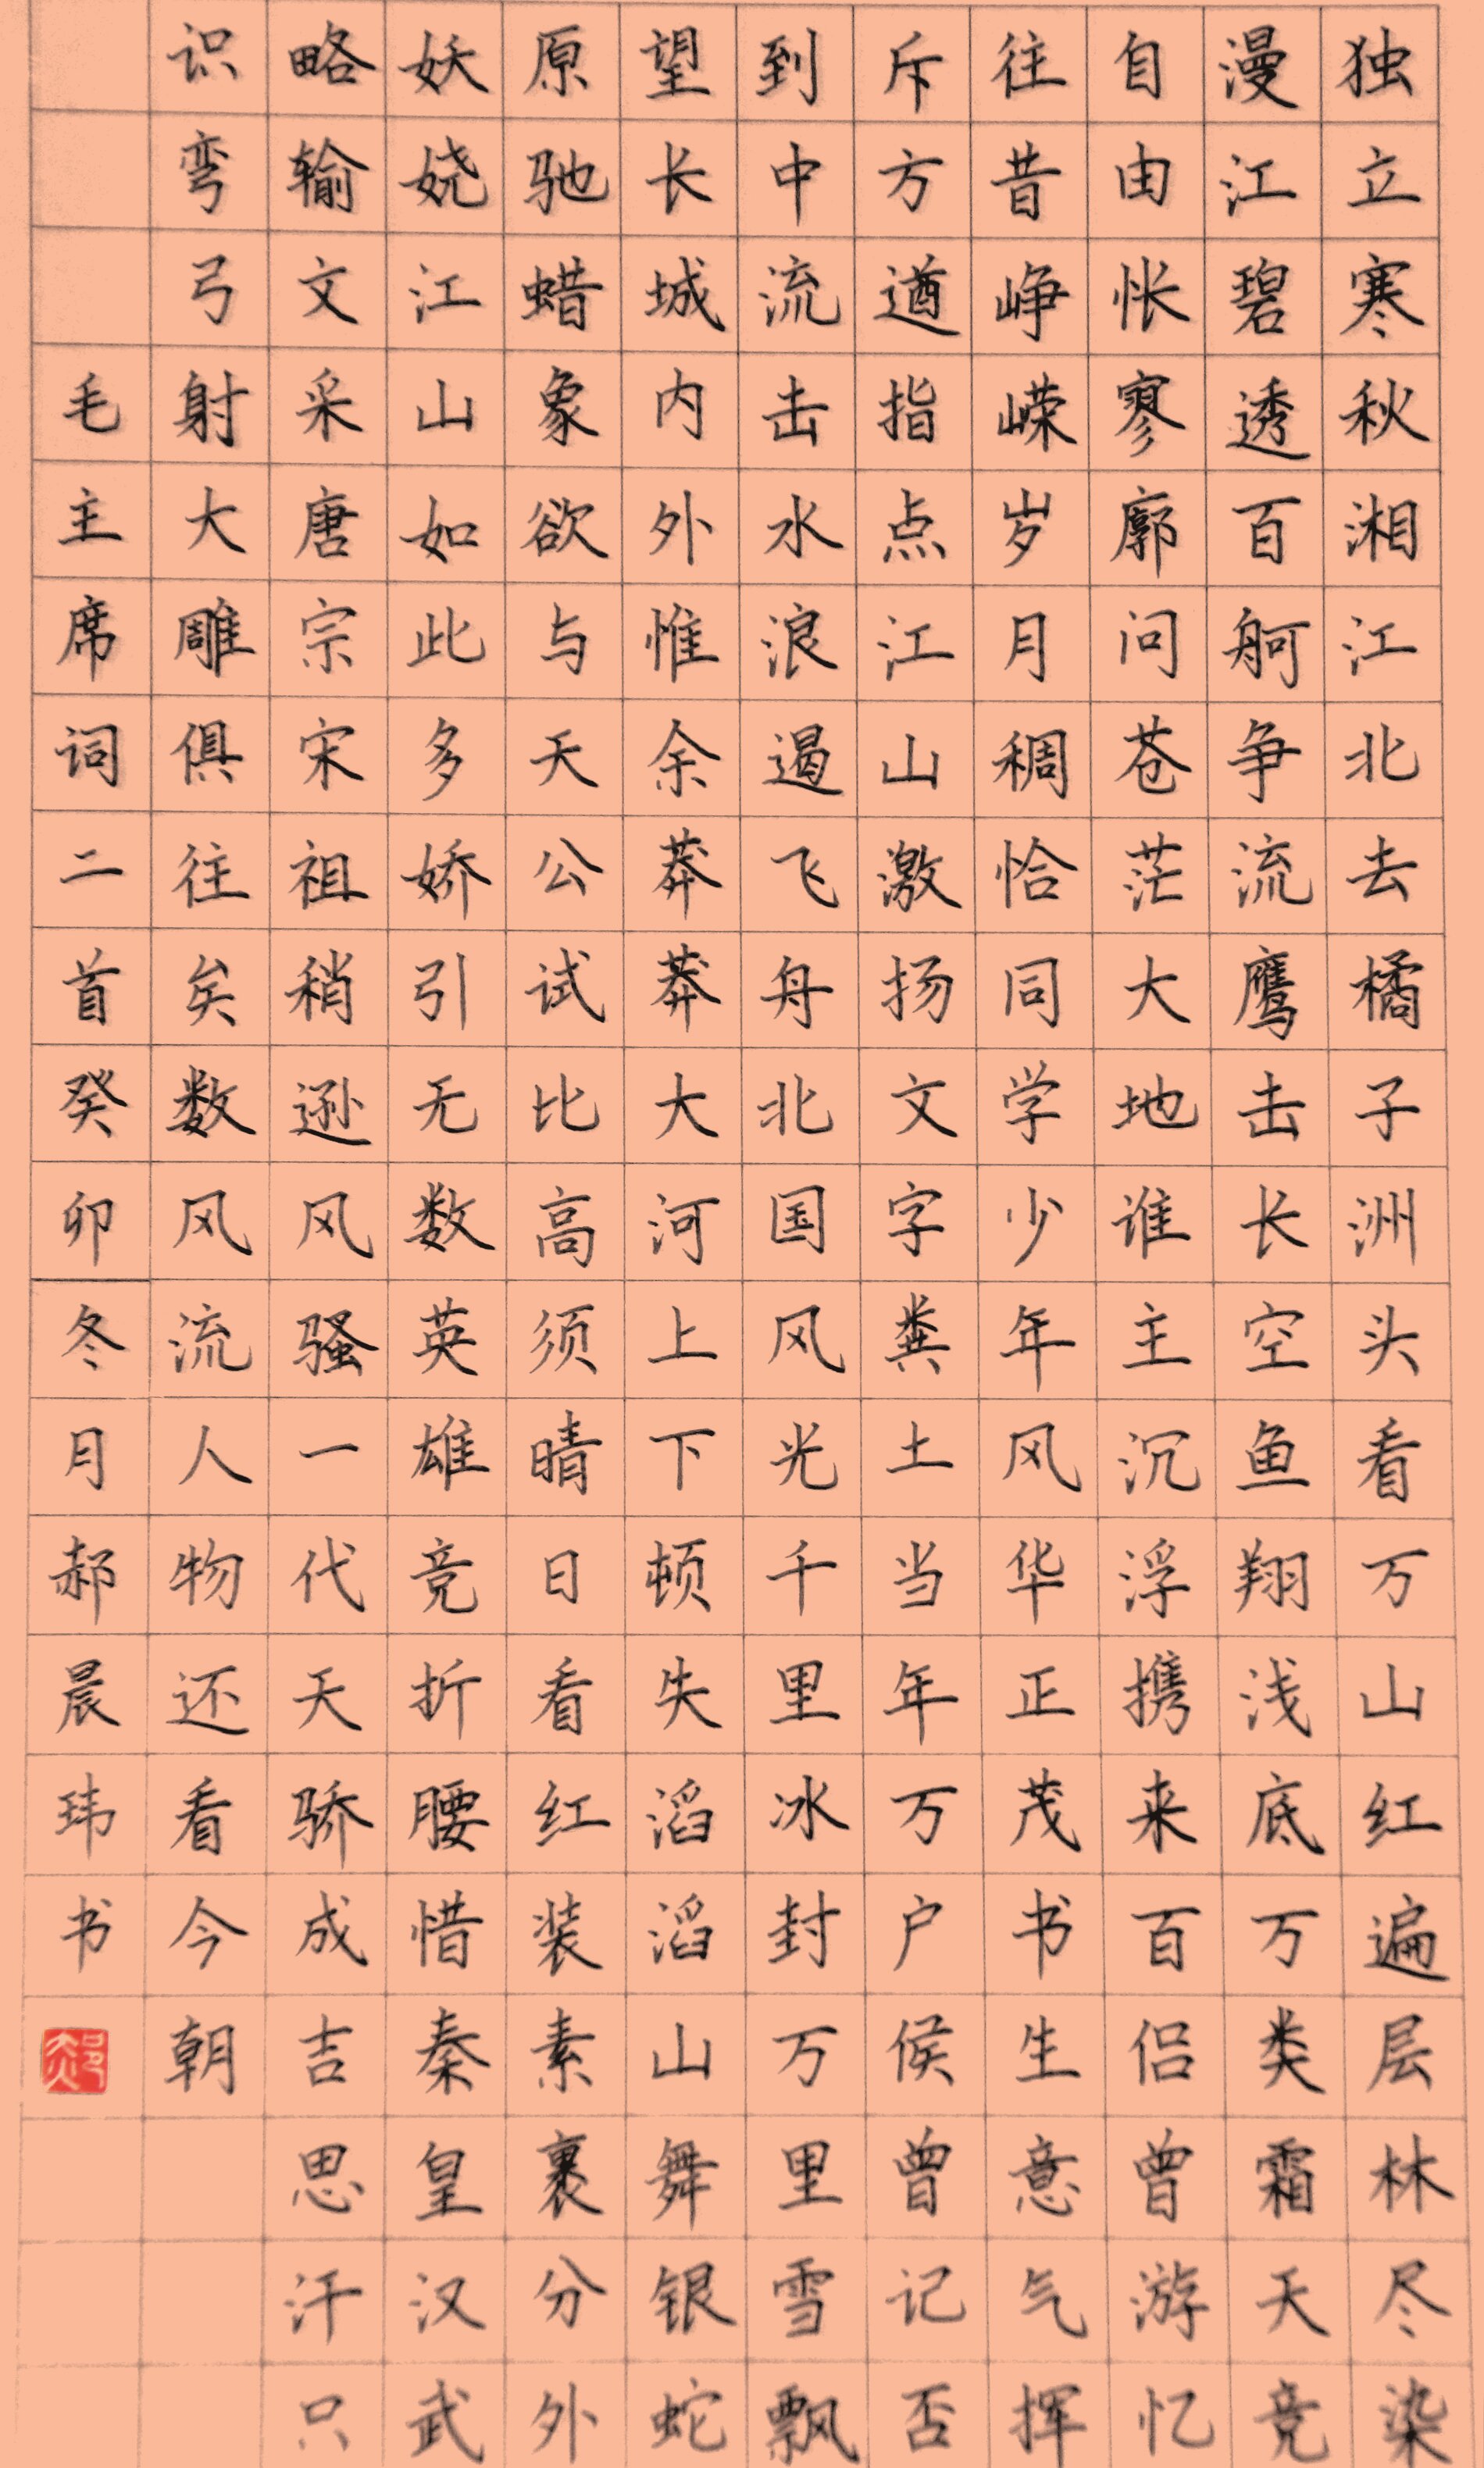 独立寒秋湘江北去橘子洲头看万山红遍层林尽染
漫江碧透百舸争流鹰击长空鱼翔浅底万类霜天竞
自由怅寥廓问苍茫大地谁主沉浮携来百侣曾游忆
往昔峥嵘岁月稠恰同学少年风华正茂书生意气挥
斥方遒指点江山激扬文字粪土当年万户侯曾记否
到中流击水浪遏飞舟北国风光千里冰封万里雪飘
望长城内外惟余莽莽大河上下顿失滔滔山舞银蛇
原驰蜡象欲与天公试比高须晴日看红装素裹分外
妖娆江山如此多娇引无数英雄竞折腰惜秦皇汉武
略输文采唐宗宋祖稍逊风骚一代天骄成吉思汗只
识弯弓射大雕俱往矣数风流人物还看今朝
毛主席词二首癸卯冬月郝晨玮书
郝